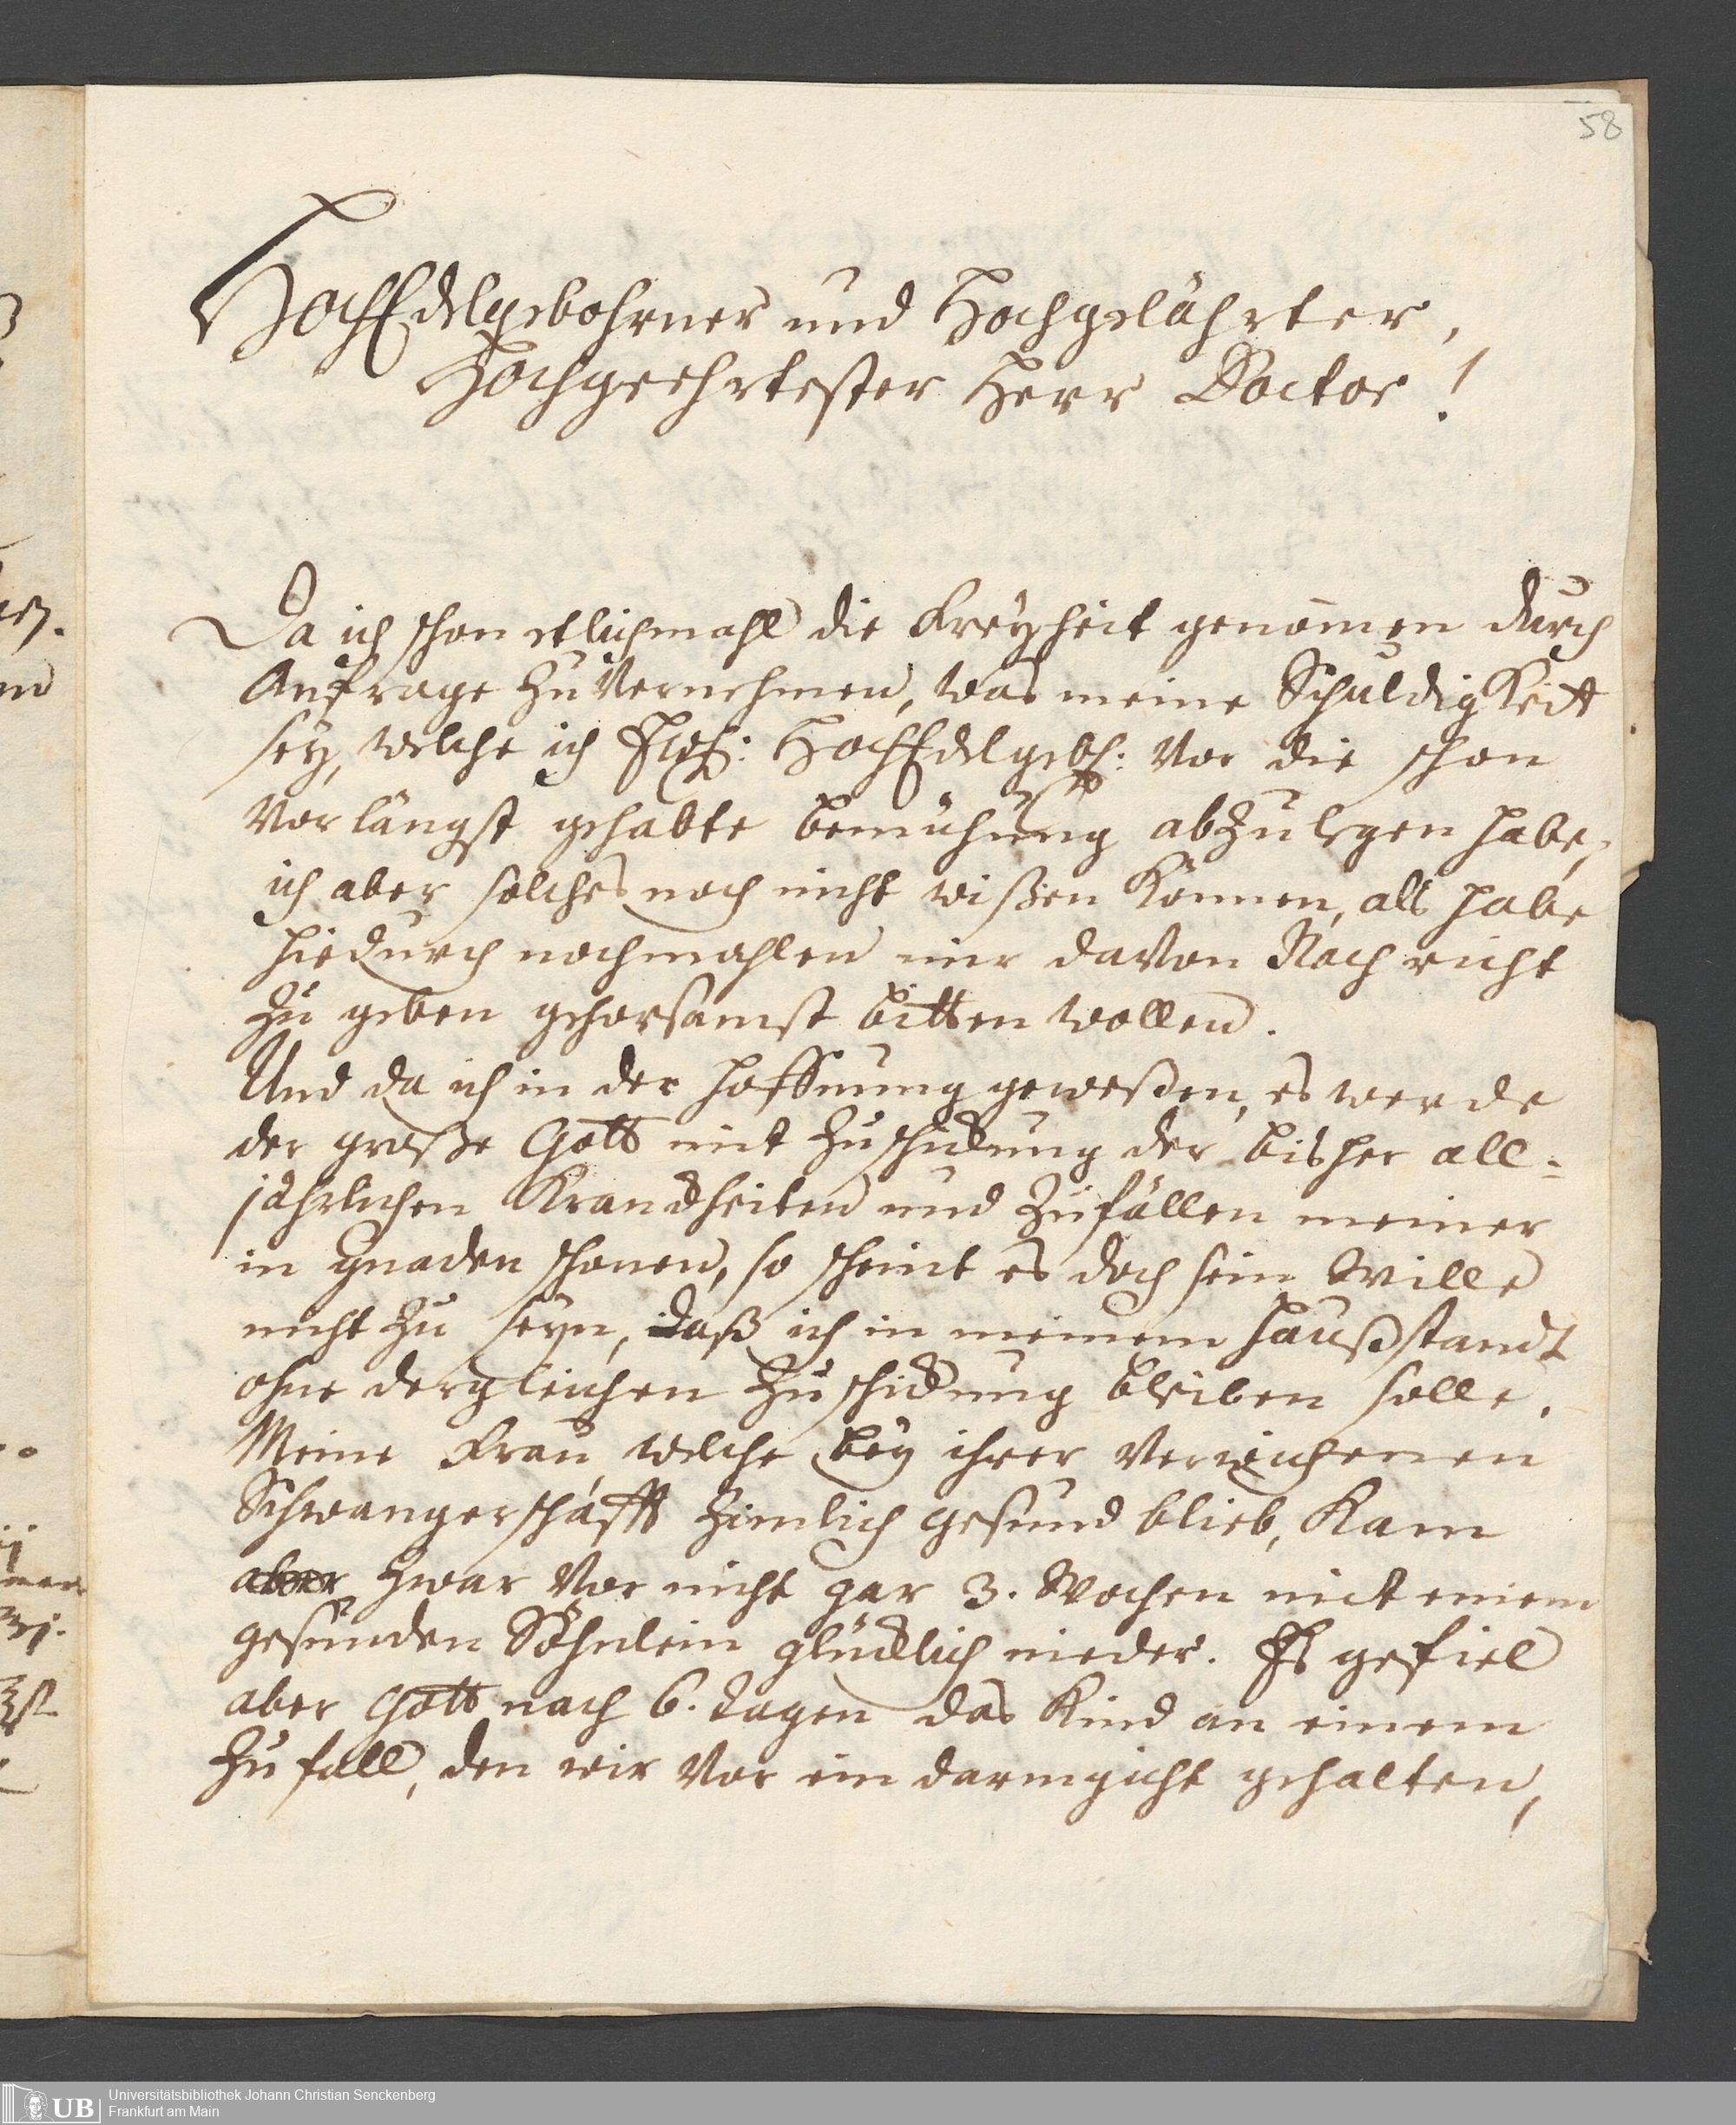 58
HochEdelgebohrner und Hochgelährter,
Hochgeehrtester Herr Doctor!
Da ich schon etlichmahl die Freyheit genom̄en durch
Anfrage zu Vernehmen, was meine SchuldigKeit
sey, welche ich Ew: HochEdelgebh: Vor die schon
Vorlängst gehabte bemühung abzulegen habe,
ich aber solches noch nicht wißen Können, als habe
hiedurch nochmahlen mir davon Nachricht
zu geben gehorsamst bitten wollen.
Und da ich in der hoffnung geweßen, es werde
der große Gott mit zuschickung der bisher all=
jährlichen Kranckheiten und Zufällen meiner
in gnaden schonen, so scheint es doch sein Wille
nicht zu seyn, daß ich in meinem haußstandt
ohne dergleichen zuschickung bleiben solle.
Meine Frau, welche bey ihrer Verwichenen
Schwangerschafft zimlich gesund blieb, Kam
aber zwar Vor nicht gar 3. Wochen mit einem
gesunden Söhnlein glücklich nieder. Es gefiel
aber Gott nach 6. tagen das Kind an einem
Zufall, den wir Vor ein darmgicht gehalten,
UB
Universitätsbibliothek Johann Christian Senckenberg
Frankfurt am Main